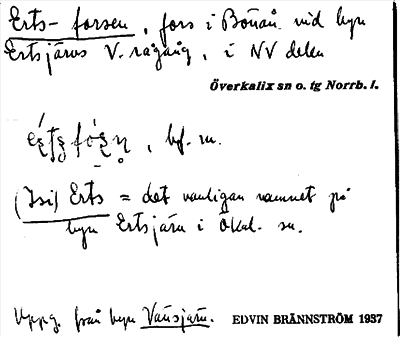 Erts-forsen, fors i Bönån vid byn
Ertsjärvs V. rågång, i NV delen
Överkalix sn o. tg Norrb. l.
bf. m.
(Isi) Erts = det vanligan namnet på
byn Ertsjärv i Ökal. sn.
Uppg. från byn Vansjärv. EDVIN BRÄNNSTRÖM 1937